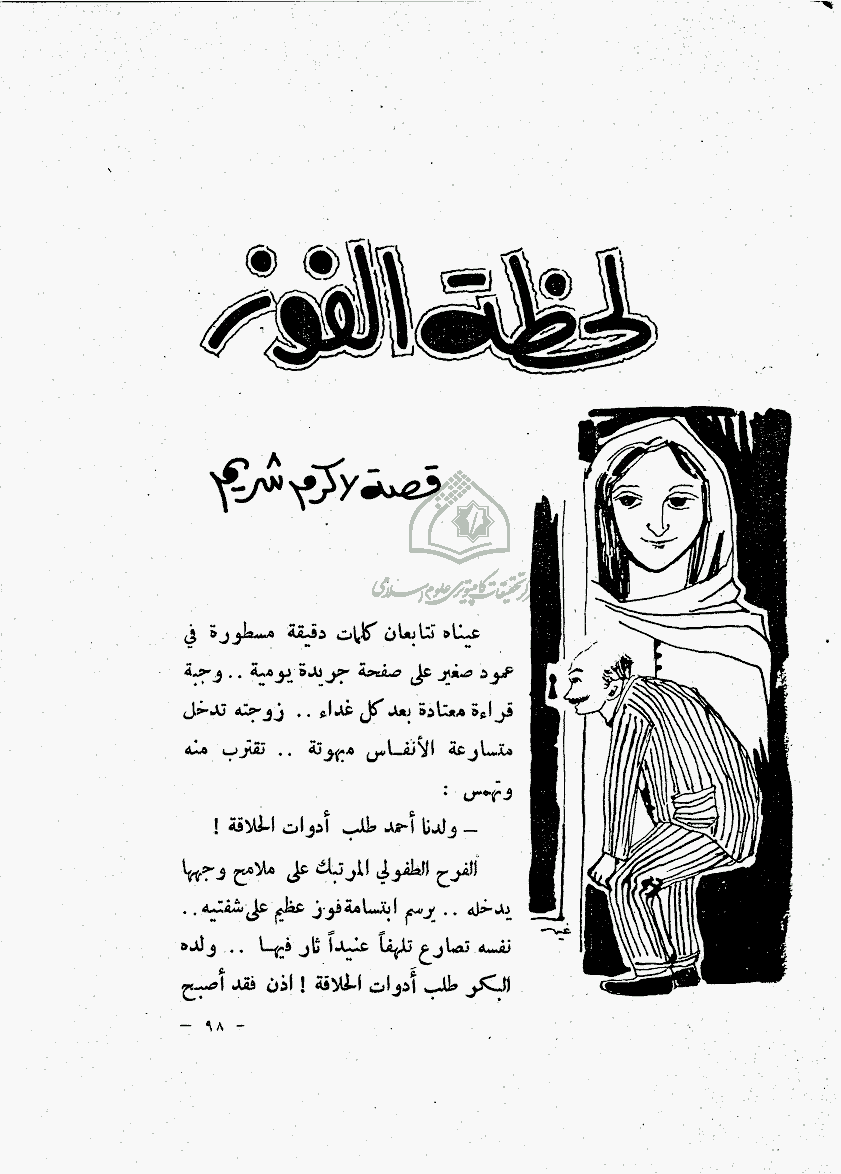 لحظة الفوز
قصة لاكرم شريم
عيناه تتابعان كلمات دقيقة مسطورة في
عمود صغير على صفحة جريدة يومية .. وجبة
قراءة معتادة بعد كل غداء .. زوجته تدخل
متسارعة الأنفـاس مبهوتة .. تقترب منه
وتهمس :
– ولدنا أحمد طلب أدوات الحلاقة !
الفرح الطفولي المرتبك على ملامح وجهها
يدخله .. يرسم ابتسامة فوز عظيم على شفتيه ..
نفسه تصارع تلهفاً عنيداً ثار فيهـا .. ولده
البكر طلب أدوات الحلاقة ! اذن فقد أصبح
– ٩٨ –